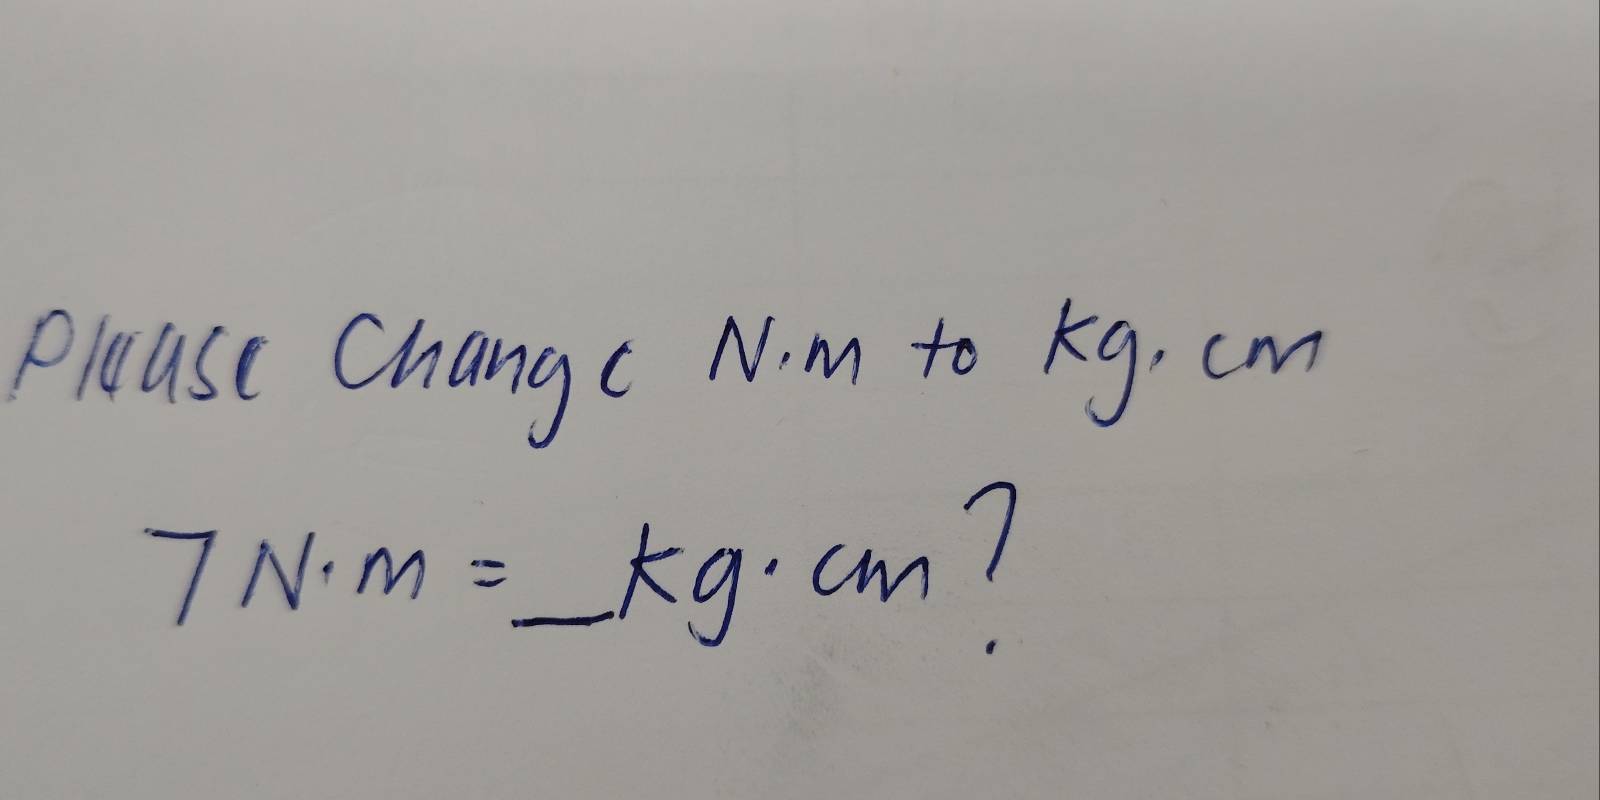 Please Change N·m to kg·cm
7 N·m = _ kg·cm?